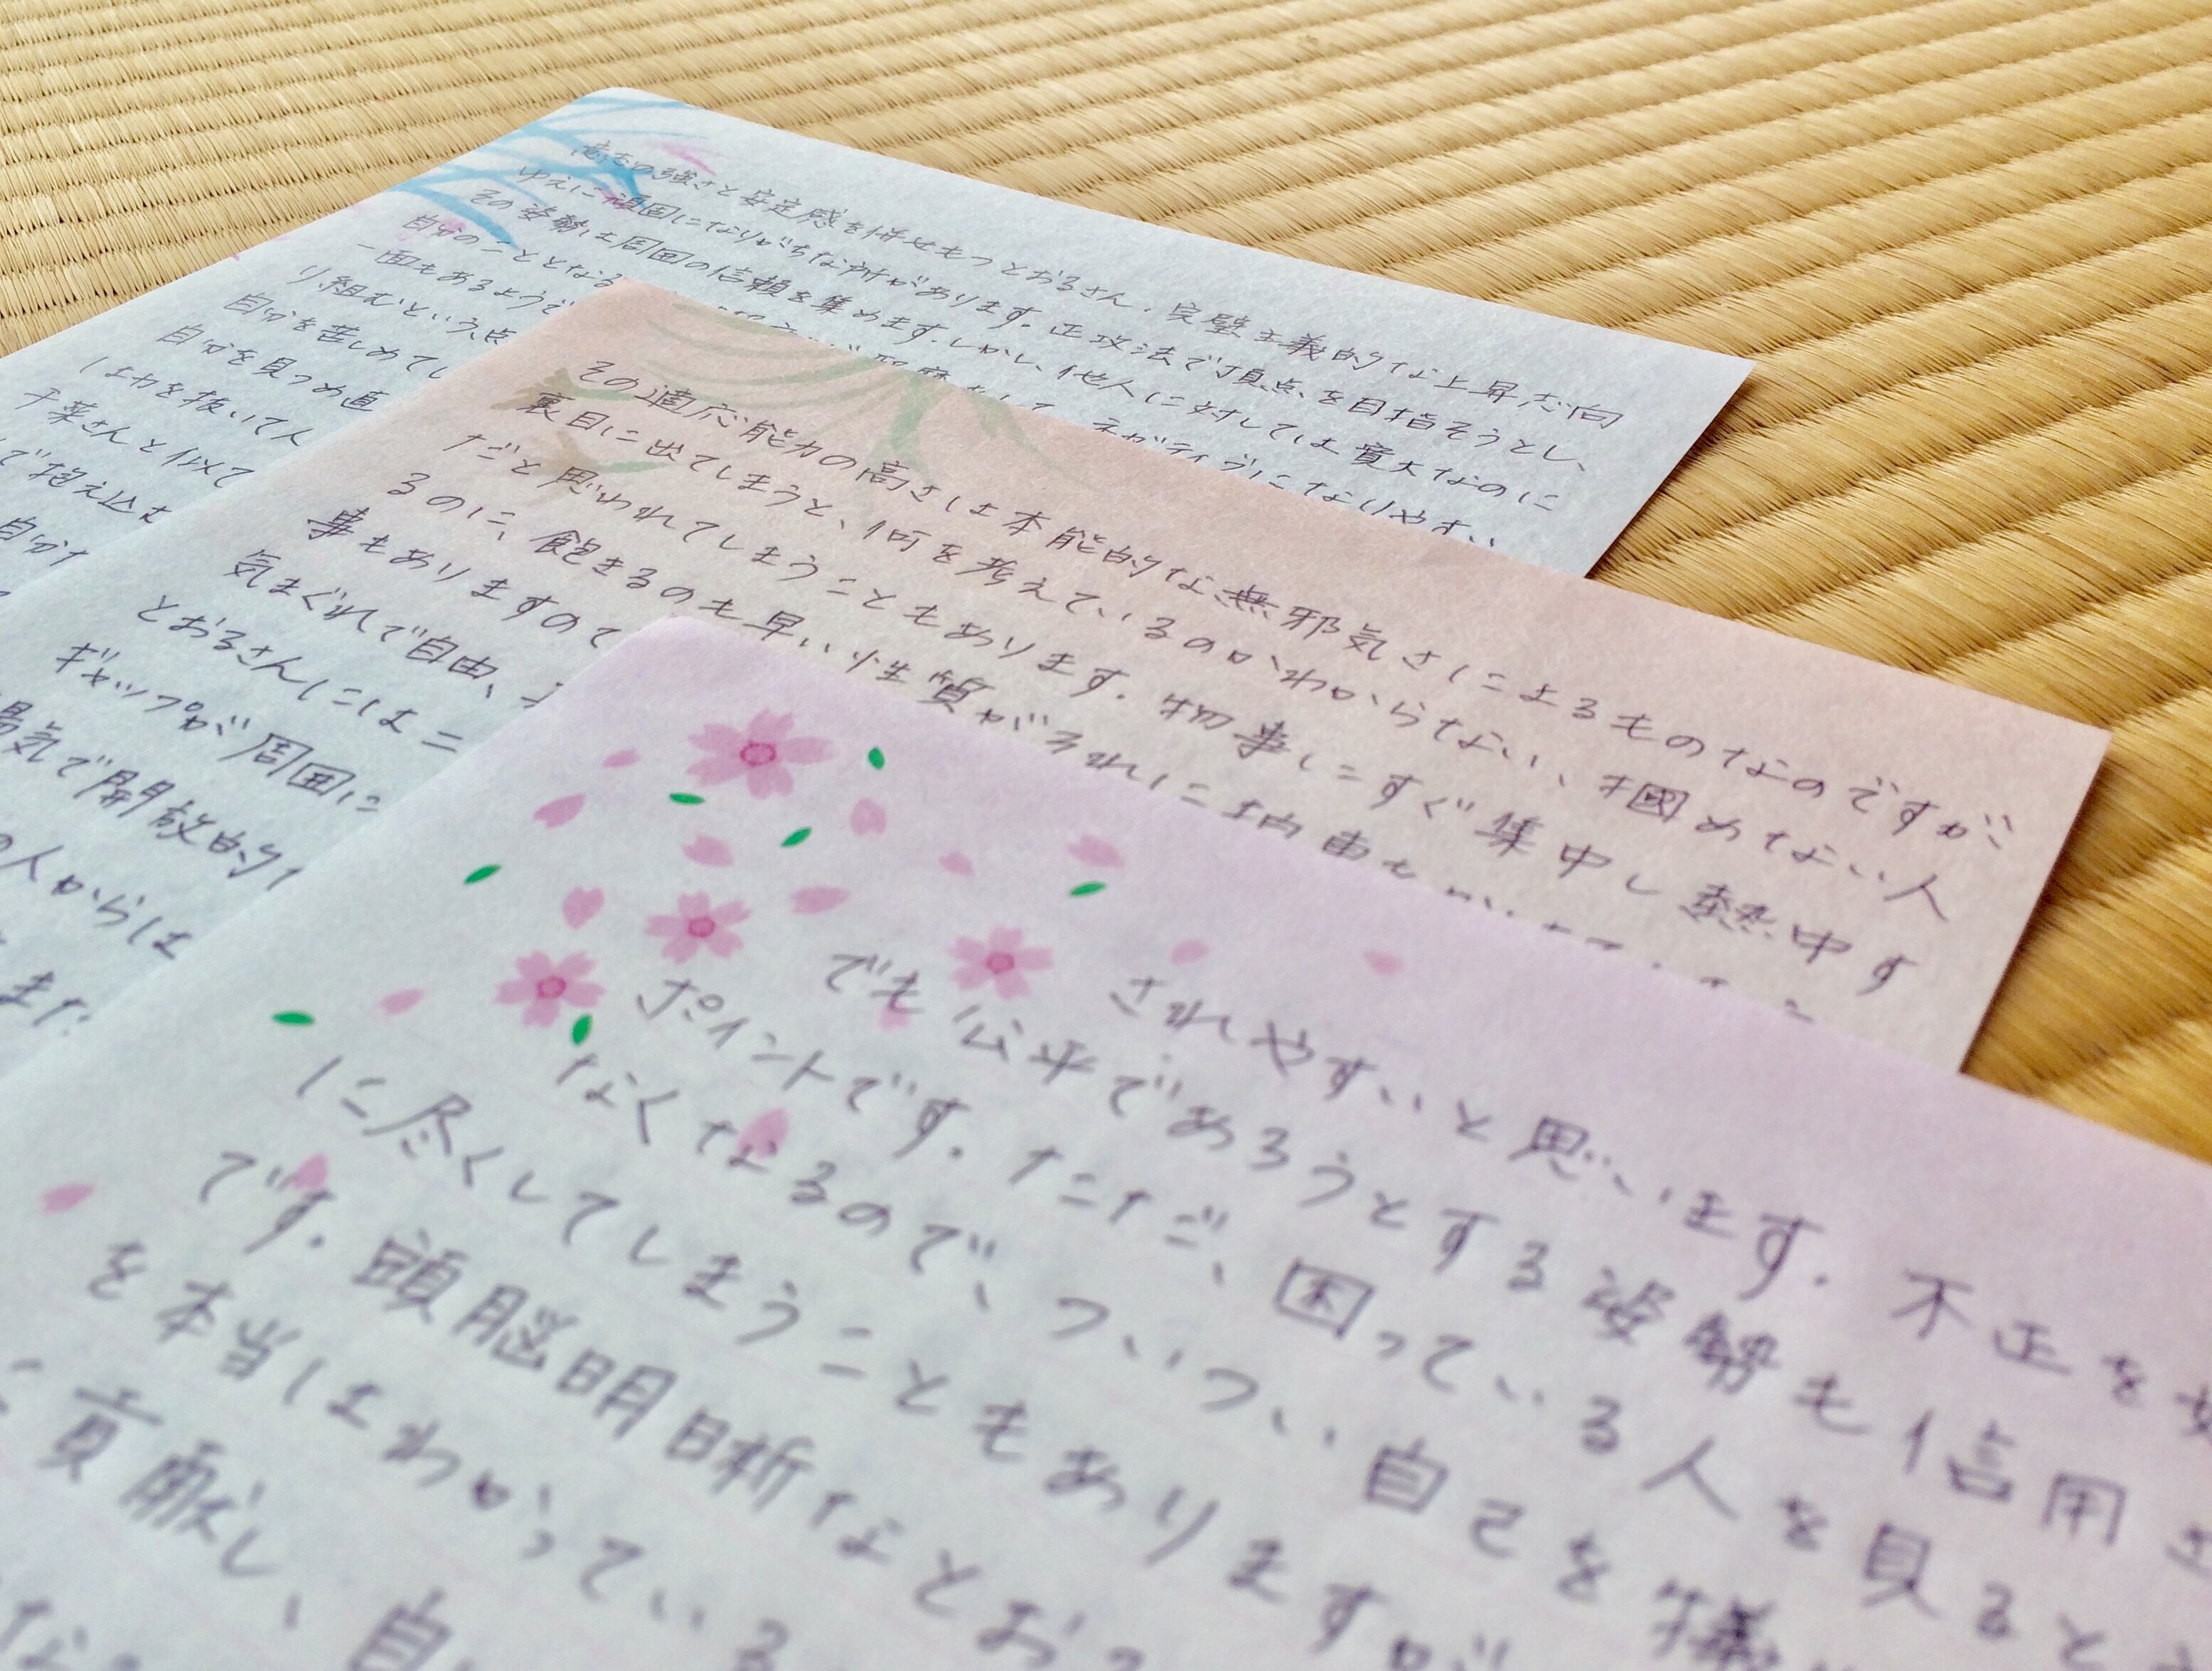 意志の強さと安定感を併せもつとおるさん、完璧主義的な上昇志向
ゆえに頑固になりがちな所があります。正攻法で頂点を目指そうとし、
その姿勢は周囲の信頼を集めます。しかし、他人に対しては寛大なのに
自分のこととなる ネガティブになりやすい
一面もあるようで
り組むという点
自分を苦しめてし
自分を見つめ直
は力を抜いて人
千葉さんと似て
で抱え込む
自分
その適応能力の高さは本能的な無邪気さによるものなのですが
裏目に出てしまうと、何を考えているのかわからない、掴めない人
だと思われてしまうこともあります。物事にすぐ集中し熱中す
るのに、飽きるのも早い性質がそれに拍車を
事もありますので
気まぐれで自由、
とおるさんには二
ギャップが周囲に
陽気で開放的
の人からは
また
されやすいと思います。不正を
でも公平であろうとする姿勢も信用
ポイントです。ただ、困っている人を見ると
なくなるので、ついつい自己を犠
に尽くしてしまうこともありますが
です。頭脳明晰なとおる
を本当はわかっている
貢献し、自